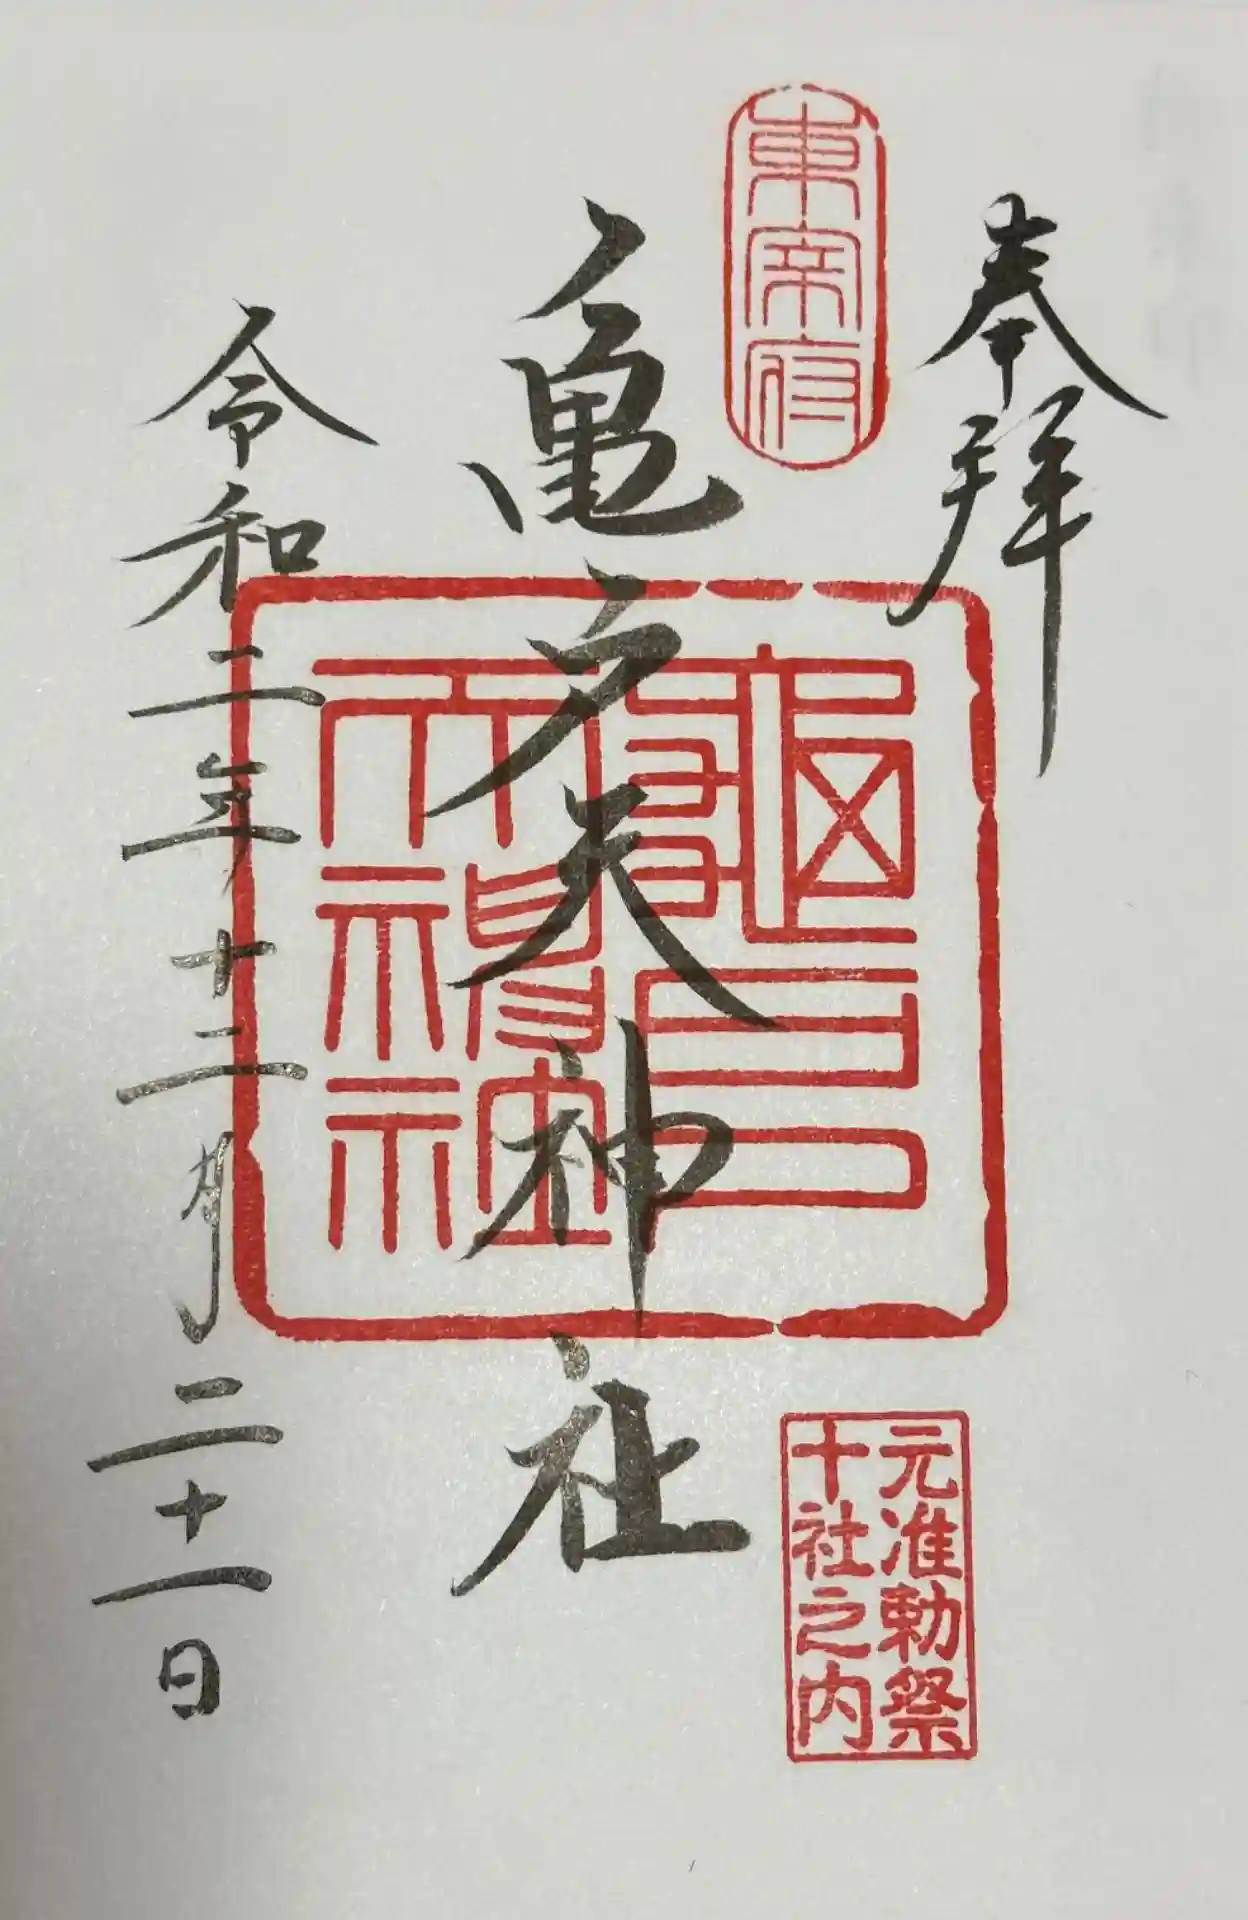 奉拜
東宰府
亀戸天神社
龜戸
天神社
元准勅祭
十社之内
令和二年十二月二十一日